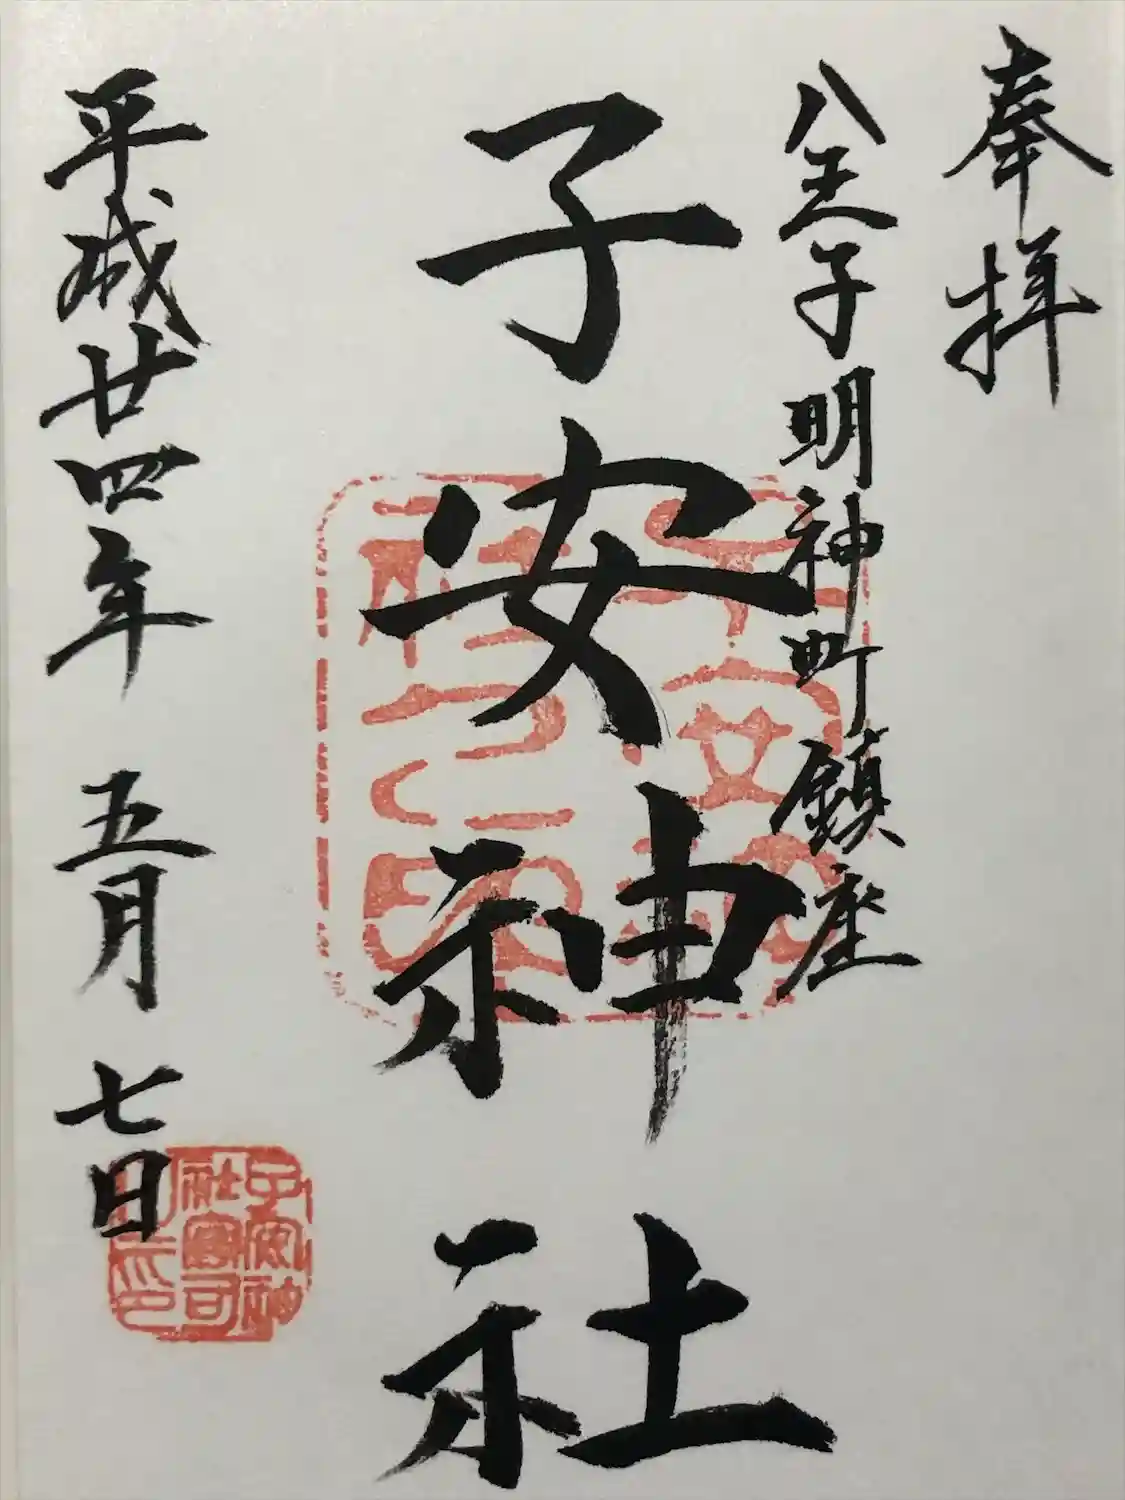 奉拝
八王子明神町鎮座
子安神社
平成廿四年 五月 七日
子安神
社宮司
之印